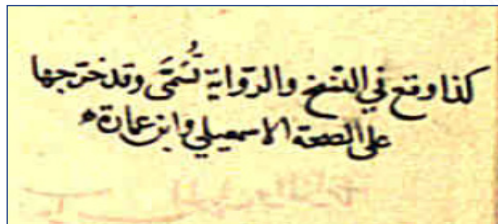 كذا وقع في النسخ والرواية تُسَمَّى وقد خرّجها
على الصحة الاسمعيلي وابن عمارة